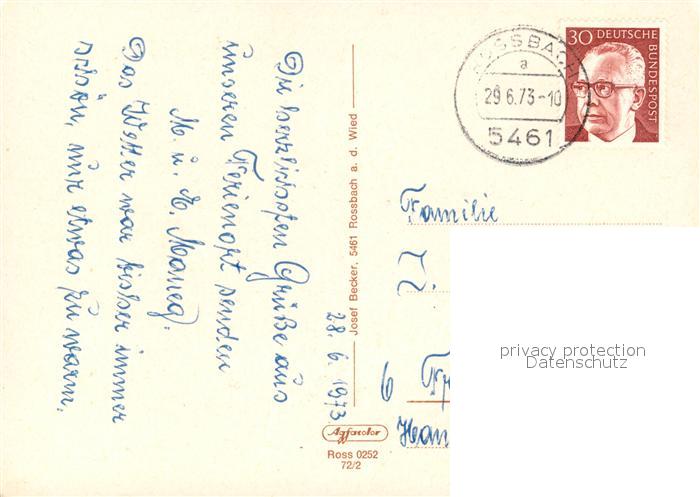 Die herzlichsten Grüße aus
unserem Ferienort senden
M. u. E. Maneg.
Das Wetter war bisher immer
schön, nur etwas zu warm.
28.6.1973
Josef Becker, 5461 Rossbach a. d. Wied
Agfacolor
Ross 0252
72/2
ROSSBACH
a
29.6.73-10
5461
30 DEUTSCHE
BUNDESPOST
Familie
6 Fr
privacy protection
Datenschutz